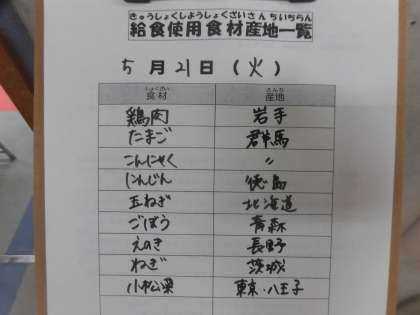 きゅうしょくしようしょくざいさんちいちらん
給食使用食材産地一覧
5月21日(火)
しょくざい さんち
食材 産地
鶏肉 岩手
たまご 群馬
こんにゃく 〃
にんじん 徳島
玉ねぎ 北海道
ごぼう 青森
えのき 長野
ねぎ 茨城
小松菜 東京・八王子